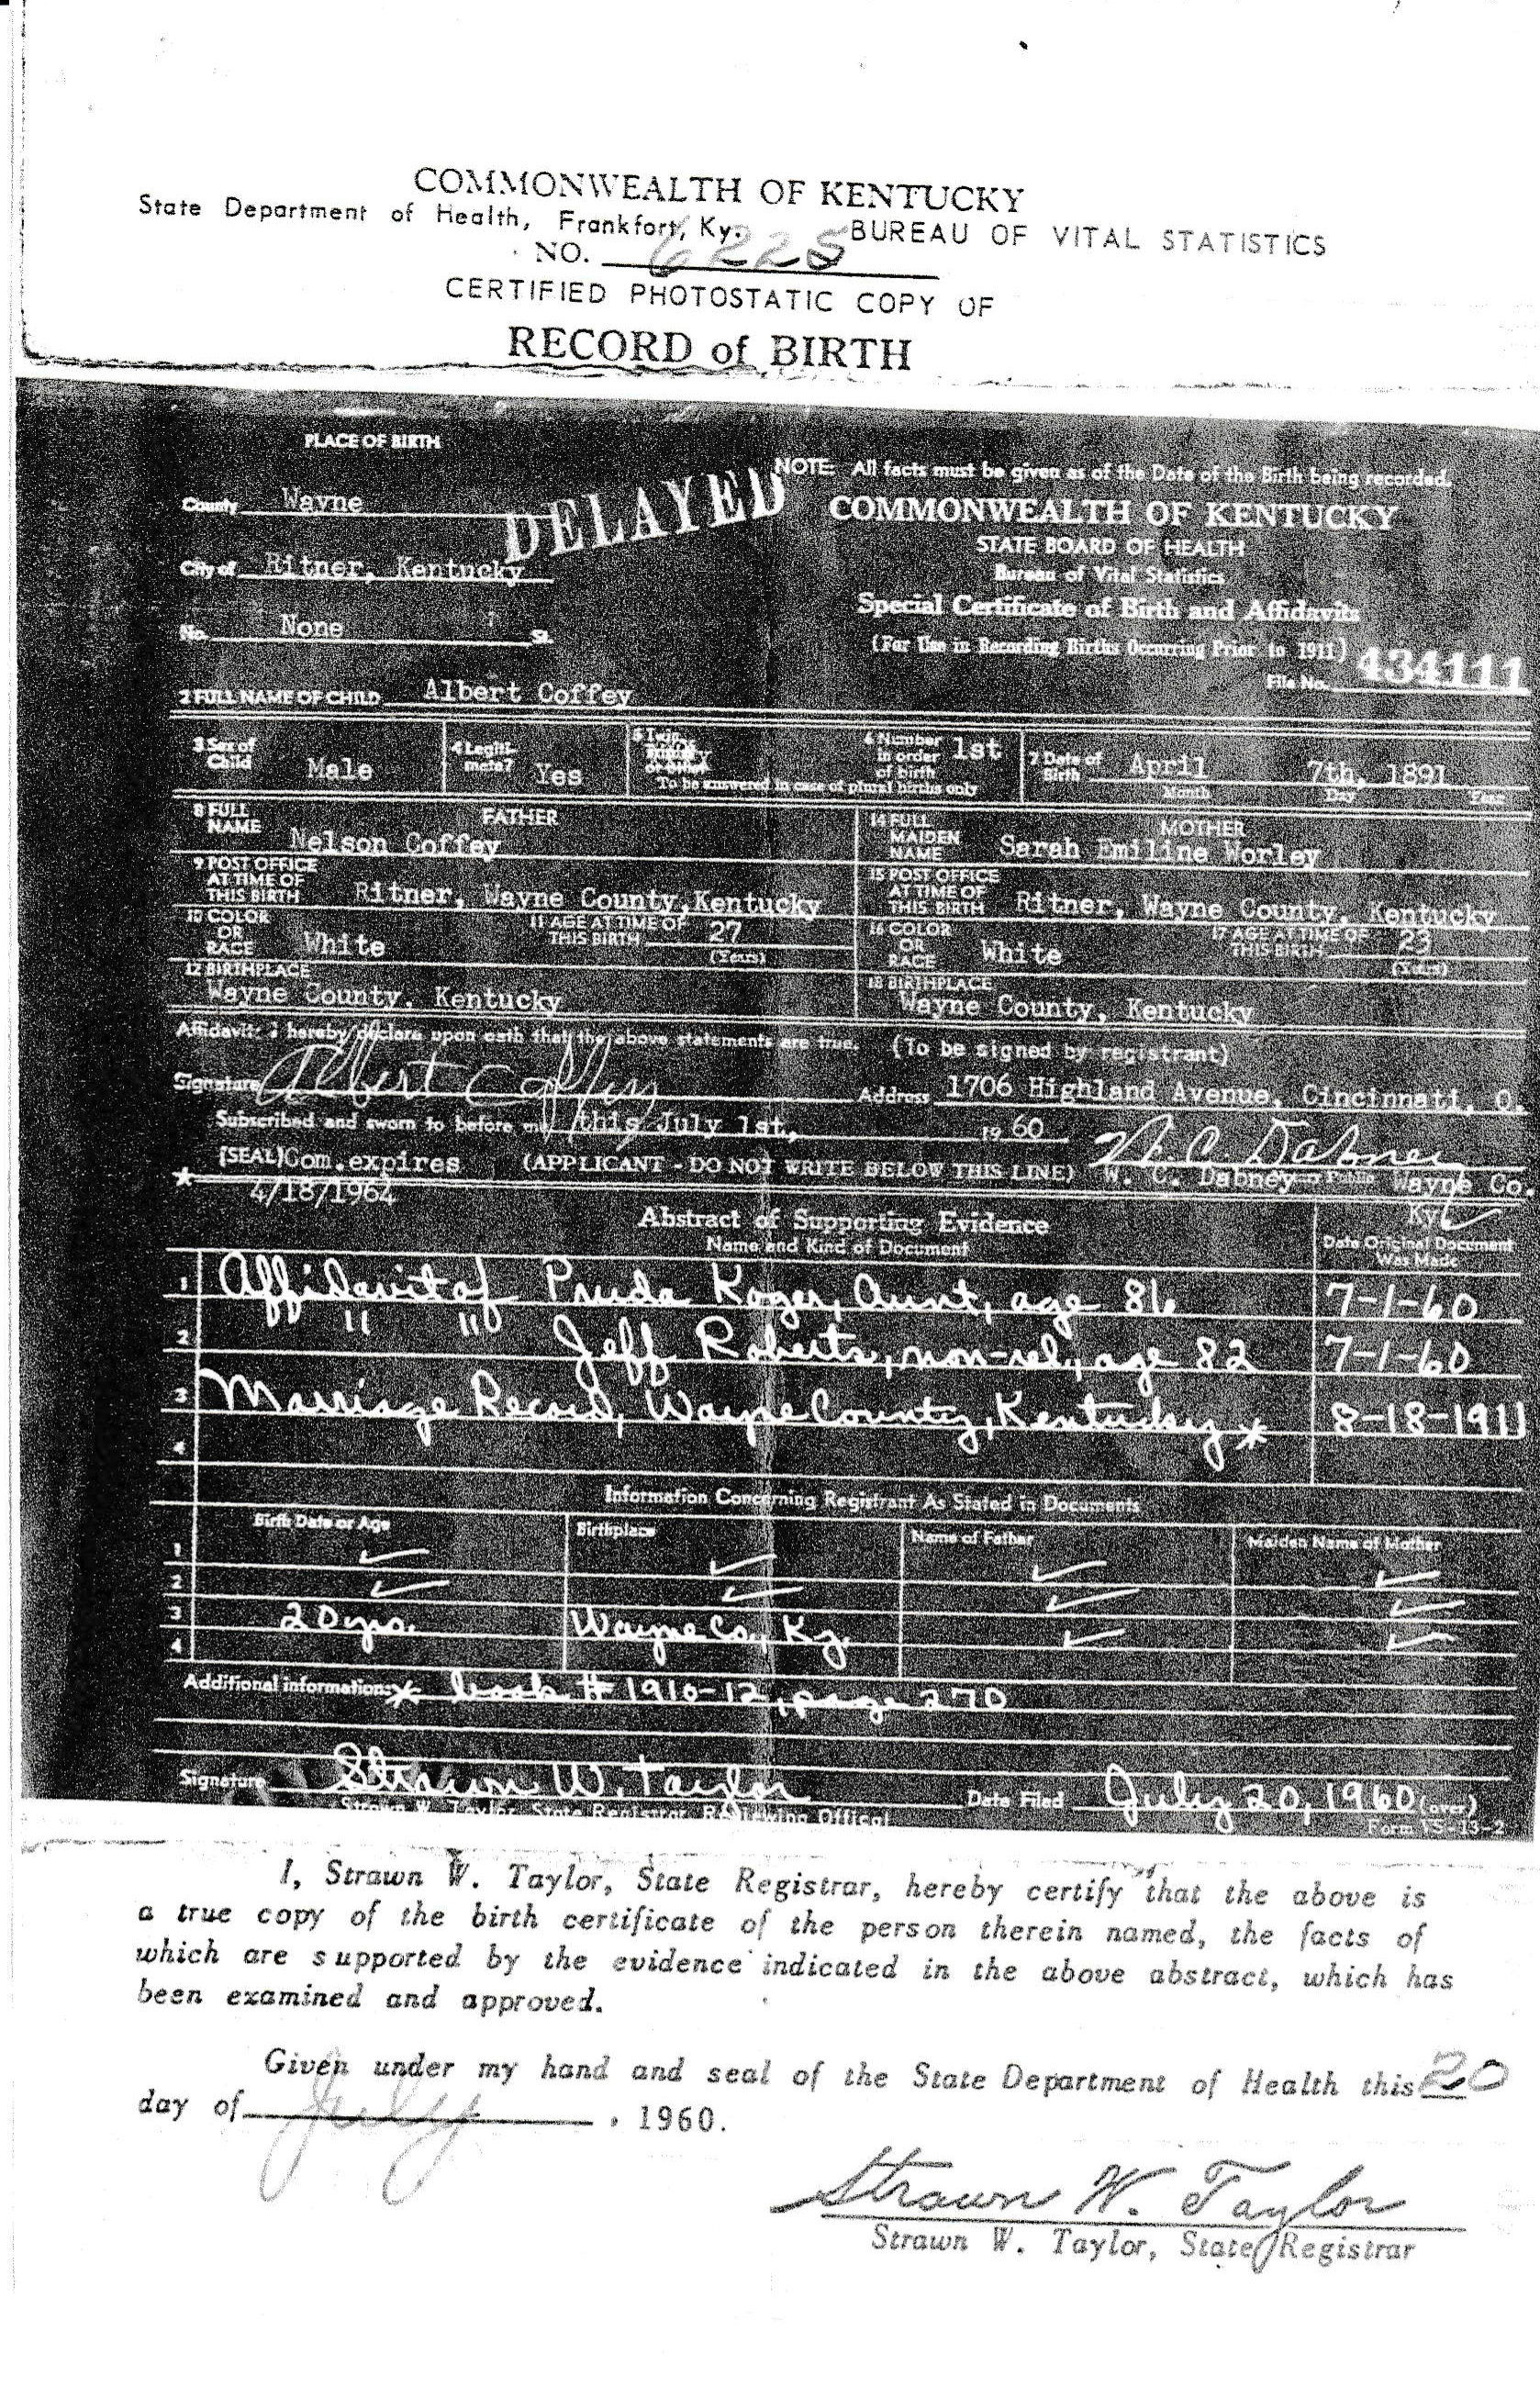 COMMONWEALTH OF KENTUCKY
State Department of Health, Frankfort, Ky. BUREAU OF VITAL STATISTICS
NO. 6225
CERTIFIED PHOTOSTATIC COPY OF
RECORD of BIRTH
PLACE OF BIRTH
NOTE: All facts must be given as of the Date of the Birth being recorded.
County Wayne
DELAYED
COMMONWEALTH OF KENTUCKY
STATE BOARD OF HEALTH
City of Ritner, Kentucky
Bureau of Vital Statistics
Special Certificate of Birth and Affidavits
No. None St.
(For Use in Recording Births Occurring Prior to 1911)
File No. 434111
2 FULL NAME OF CHILD Albert Coffey
3 Sex of Child Male
4 Legitimate? Yes
5 Twin,
6 Number in order of birth 1st
To be answered in case of plural births only
7 Date of Birth April 7th, 1891
Month Day Year
8 FULL NAME FATHER Nelson Coffey
14 FULL MAIDEN NAME MOTHER Sarah Emiline Worley
9 POST OFFICE AT TIME OF THIS BIRTH Ritner, Wayne County, Kentucky
15 POST OFFICE AT TIME OF THIS BIRTH Ritner, Wayne County, Kentucky
10 COLOR OR RACE White
11 AGE AT TIME OF THIS BIRTH 27 (Years)
16 COLOR OR RACE White
17 AGE AT TIME OF THIS BIRTH 23 (Years)
12 BIRTHPLACE Wayne County, Kentucky
18 BIRTHPLACE Wayne County, Kentucky
Affidavit: I hereby declare upon oath that the above statements are true. (To be signed by registrant)
Signature Albert Coffey Address 1706 Highland Avenue, Cincinnati, O.
Subscribed and sworn to before me this July 1st, 19 60 W. C. Dabney
(SEAL) Com. expires (APPLICANT - DO NOT WRITE BELOW THIS LINE) W. C. Dabney Public Wayne Co.
* 4/18/1964 Ky
Abstract of Supporting Evidence
Name and Kind of Document
Date Original Document Was Made
1 Affidavit of Pruda Koger, Aunt, age 86 7-1-60
2 " " Jeff Roberts, non-rel, age 82 7-1-60
3 Marriage Record, Wayne County, Kentucky * 8-18-1911
4
Information Concerning Registrant As Stated in Documents
Birth Date or Age Birthplace Name of Father Maiden Name of Mother
1 ✓ ✓ ✓ ✓
2 ✓ ✓ ✓ ✓
3 20 yrs. Wayne Co., Ky. ✓ ✓
4
Additional information: * book # 1910-12, page 270
Signature Strawn W. Taylor Date Filed July 20, 1960 (over)
Strawn W. Taylor, State Registrar, Reviewing Official Form VS-13-2
I, Strawn W. Taylor, State Registrar, hereby certify that the above is
a true copy of the birth certificate of the person therein named, the facts of
which are supported by the evidence indicated in the above abstract, which has
been examined and approved.
Given under my hand and seal of the State Department of Health this 20
day of July, 1960.
Strawn W. Taylor
Strawn W. Taylor, State Registrar